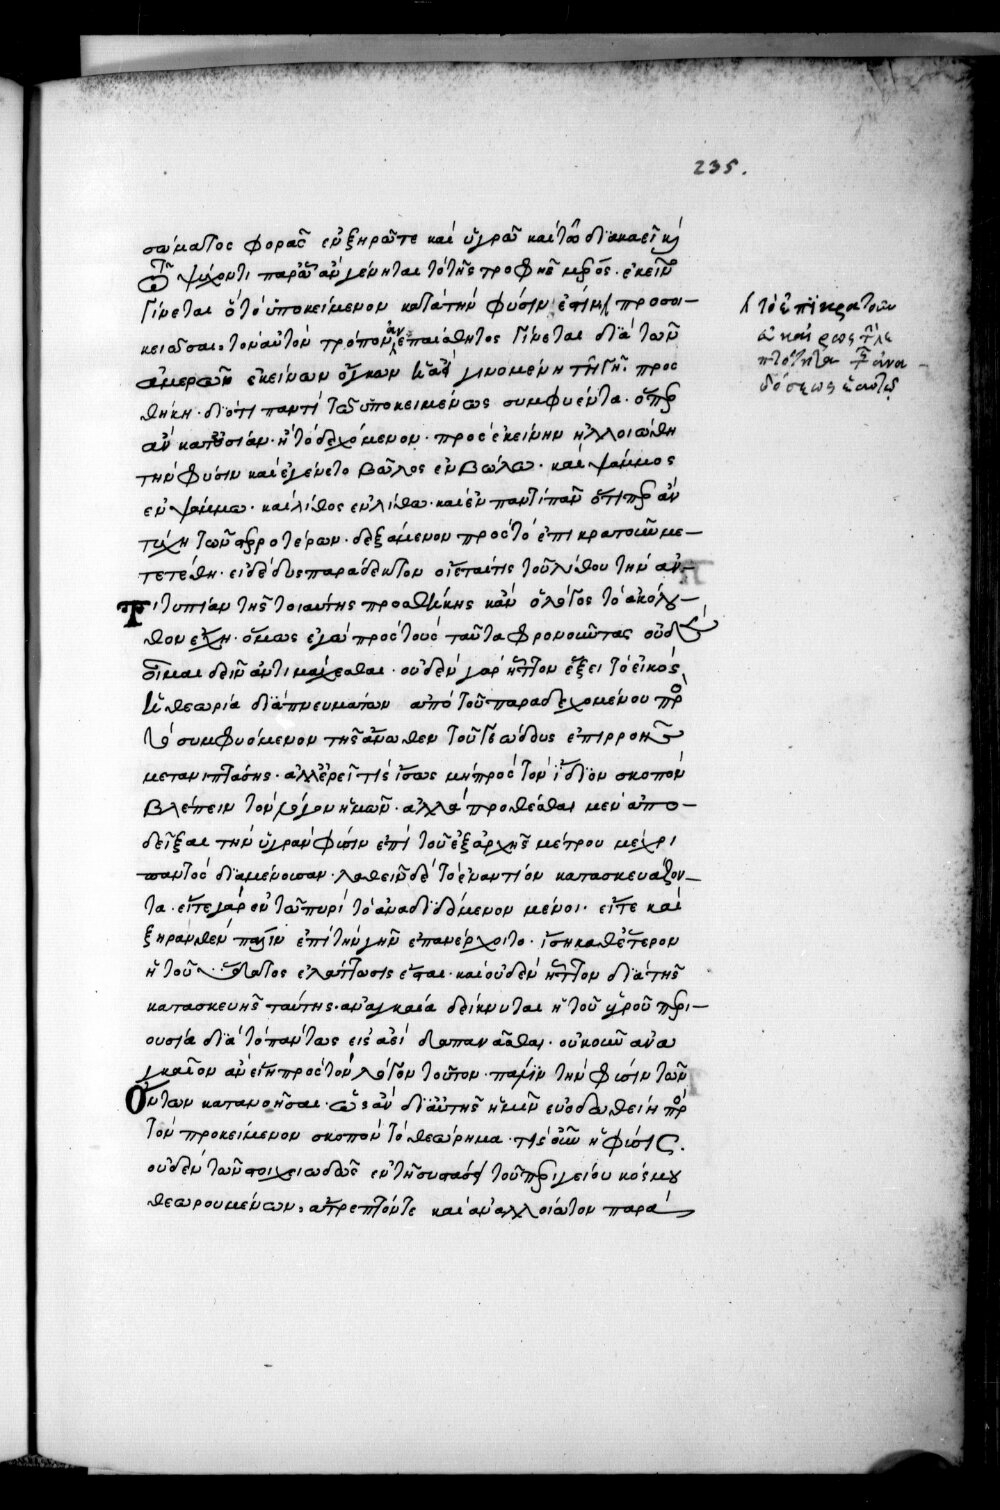 235.
σώματος φορᾶς ἐν ξηρῶ τε καὶ ὑγρῶ καὶ τῶ διακαεῖ καὶ
τῶ ψύχοντι παρ' ὧ ἂν γένηται τὸ τῆς τροφῆς μέρος. ἐκεῖνο
γίνεται ὃ τὸ ὑποκείμενον κατὰ τὴν φύσιν ἐστὶν προσοι-
κειοῦσαι. τὸν αὐτὸν τρόπον ἀνεπαίσθητος γίνεται διὰ τῶν
ἀμερῶν ἐκείνων ὄγκων ἡ γινομένη τῆ γῆ προς
θήκη. διότι παντὶ τῶ ὑποκειμένως συμφυέντα. ὅπερ
ἂν κατουσίαν ἢ τὸ δεχόμενον. πρὸς ἐκείνην ἠλλοιώθη
τὴν φύσιν καὶ ἐγένετο βῶλος ἐν βώλω. καὶ ψάμμος
ἐν ψάμμω. καὶ λίθος ἐν λίθω. καὶ ἐν παντὶ πᾶν ὅτιπερ ἂν
τύχη τῶν στερροτέρων. δεξάμενον πρὸς τὸ ἐπικρατοῦν με-
τετέθη. εἰ δὲ δυσπαράδεκτον οἴεταί τις τοῦ λίθου τὴν ἀν-
τιτυπίαν τῆς τοιαύτης προσθήκης κἂν ὁ λόγος τὸ ἀκόλου
θον ἔχη. ὅμως ἐγὼ πρὸς τοὺς ταῦτα φρονοῦντας οὐδὲν
οἶμαι δεῖν ἀντιμάχεσθαι. οὐδὲν γὰρ ἧττον ἕξει τὸ εἰκὸς
ἡ θεωρία διαπνευμάτων ἀπὸ τοῦ παραδεχομένου πρὸς
τὸ συμφυόμενον τῆς ἄνωθεν τοῦ γεώδους ἐπιρροῆς
μετανισταμένης. ἀλλ' ἐρεῖ τις ἴσως μὴ πρὸς τὸν ἴδιον σκοπὸν
βλέπειν τὸν λόγον ἡμῶν. ἀλλὰ προθέσθαι μὲν ἀπο-
δεῖξαι τὴν ὑγρὰν φύσιν ἐπὶ τοῦ ἐξ ἀρχῆς μέτρου μέχρι
παντὸς διαμένουσαν. λαθεῖν δὲ τὸ ἐναντίον κατασκευάζον-
τα. εἴτε γὰρ ἐν τῶ πυρὶ τὸ ἀναδιδόμενον μένοι. εἴτε καὶ
ξηρανθὲν πάλιν ἐπὶ τὴν γῆν ἐπανέρχοιτο. ἴση καθ' ἕτερον
ἡ τοῦ ὕδατος ἐλάττωσις ἔσται. καὶ οὐδὲν ἧττον διὰ τῆς
κατασκευῆς ταύτης. ἀναγκαία δείκνυται ἡ τοῦ ὑγροῦ περι-
ουσία διὰ τὸ πάντως εἰς ἀεὶ δαπανᾶσθαι. οὐκοῦν ἀνα
γκαῖον ἂν εἴη πρὸς τὸν λόγον τοῦτον. πάλιν τὴν φύσιν τῶν
ὄντων κατανοῆσαι. ὡς ἂν δι' αὐτῆς ἡμῖν εὐοδωθείη πρὸς
τὸν προκείμενον σκοπὸν τὸ θεώρημα. τίς οὖν ἡ φύσις.
οὐδὲν τῶν στοιχειωδῶς ἐν τῆ συστάσει τοῦ περιγείου κόσμου
θεωρουμένων, ἄτρεπτόν τε καὶ ἀναλλοίωτον παρὰ
τὸ ἐπικρατοῦν